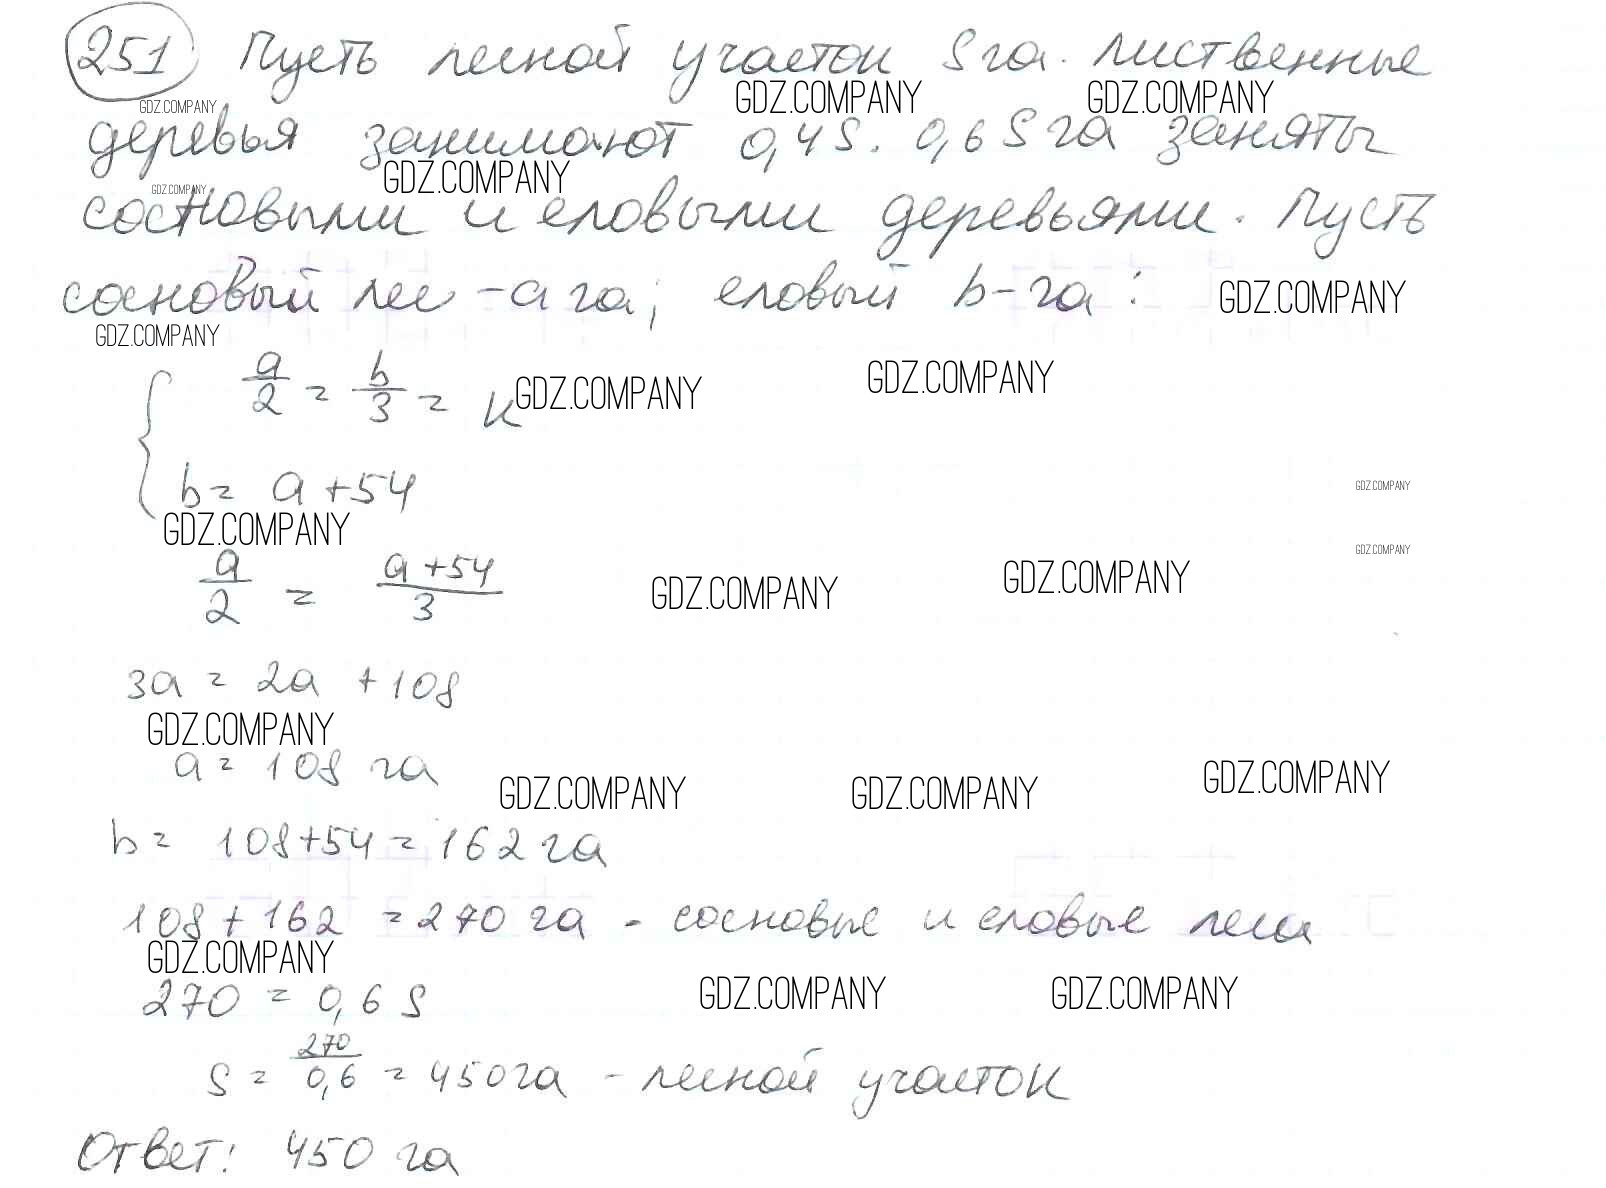 251 Пусть лесной участок S га. Лиственные
GDZ.COMPANY GDZ.COMPANY GDZ.COMPANY
деревья занимают 0,4S. 0,6 S га заняты
GDZ.COMPANY GDZ.COMPANY
сосновыми и еловыми деревьями. Пусть
сосновый лес - a га; еловый b - га:
GDZ.COMPANY
GDZ.COMPANY
a/2 = b/3 = к
GDZ.COMPANY GDZ.COMPANY
b = a + 54
GDZ.COMPANY
GDZ.COMPANY
GDZ.COMPANY
a/2 = (a + 54)/3
GDZ.COMPANY GDZ.COMPANY
3a = 2a + 108
GDZ.COMPANY
a = 108 га
GDZ.COMPANY GDZ.COMPANY GDZ.COMPANY
b = 108 + 54 = 162 га
108 + 162 = 270 га - сосновые и еловые леса
GDZ.COMPANY
270 = 0,6 S
GDZ.COMPANY GDZ.COMPANY
S = 270/0,6 = 450 га - лесной участок
Ответ: 450 га